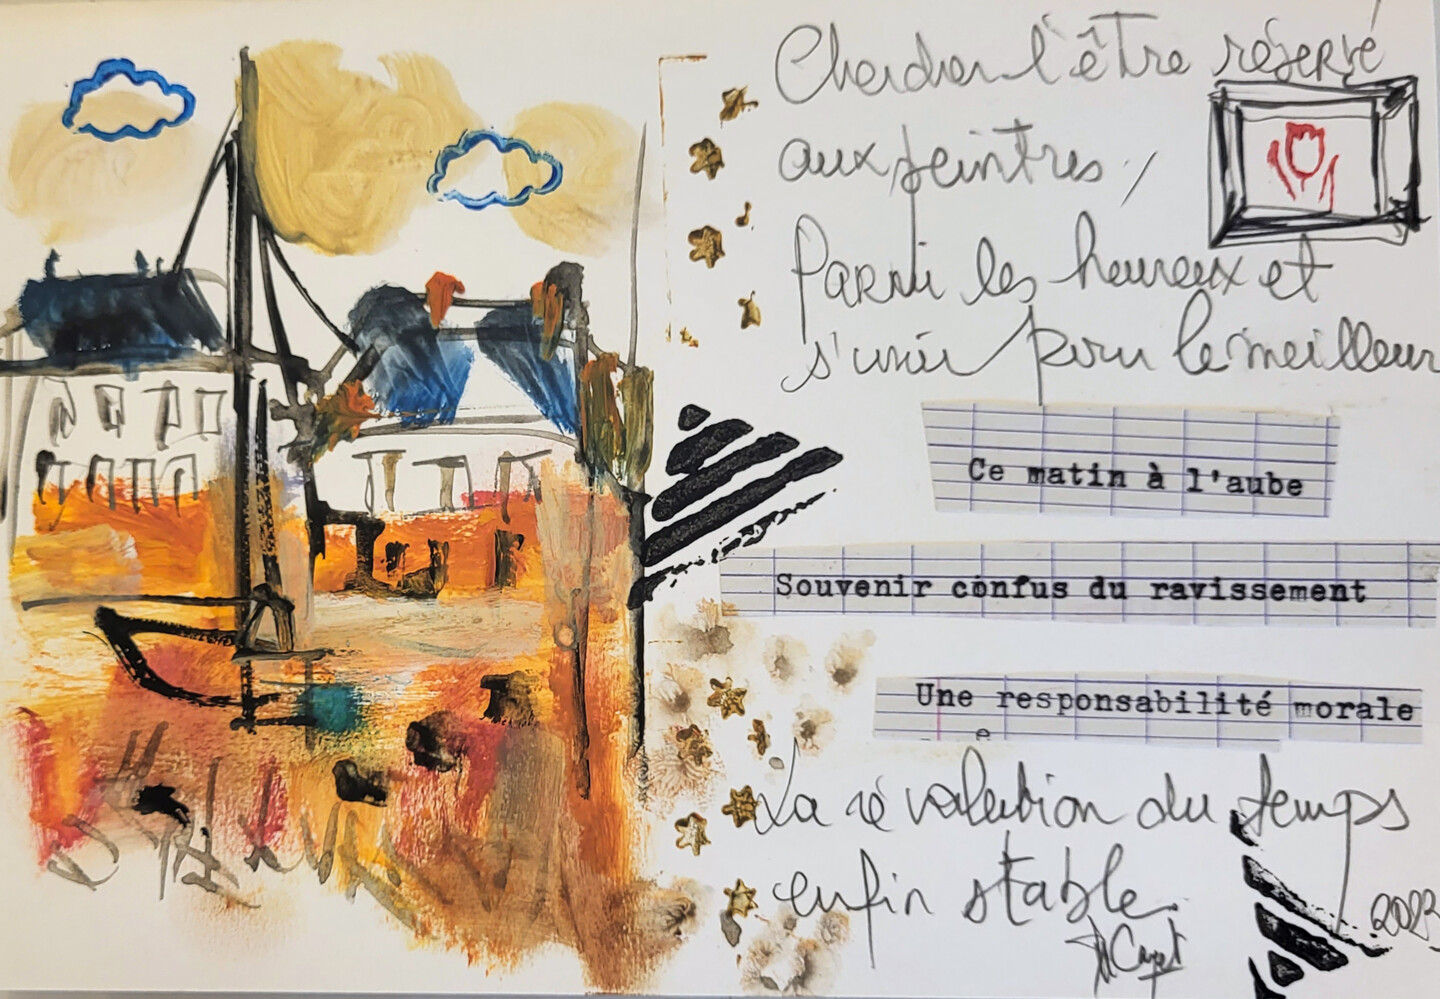 Chercher l'être réservé
aux peintres,
Parmi les heureux et
s'unir pour le meilleur
Ce matin à l'aube
Souvenir confus du ravissement
Une responsabilité morale
La révolution du temps
enfin stable.
2023